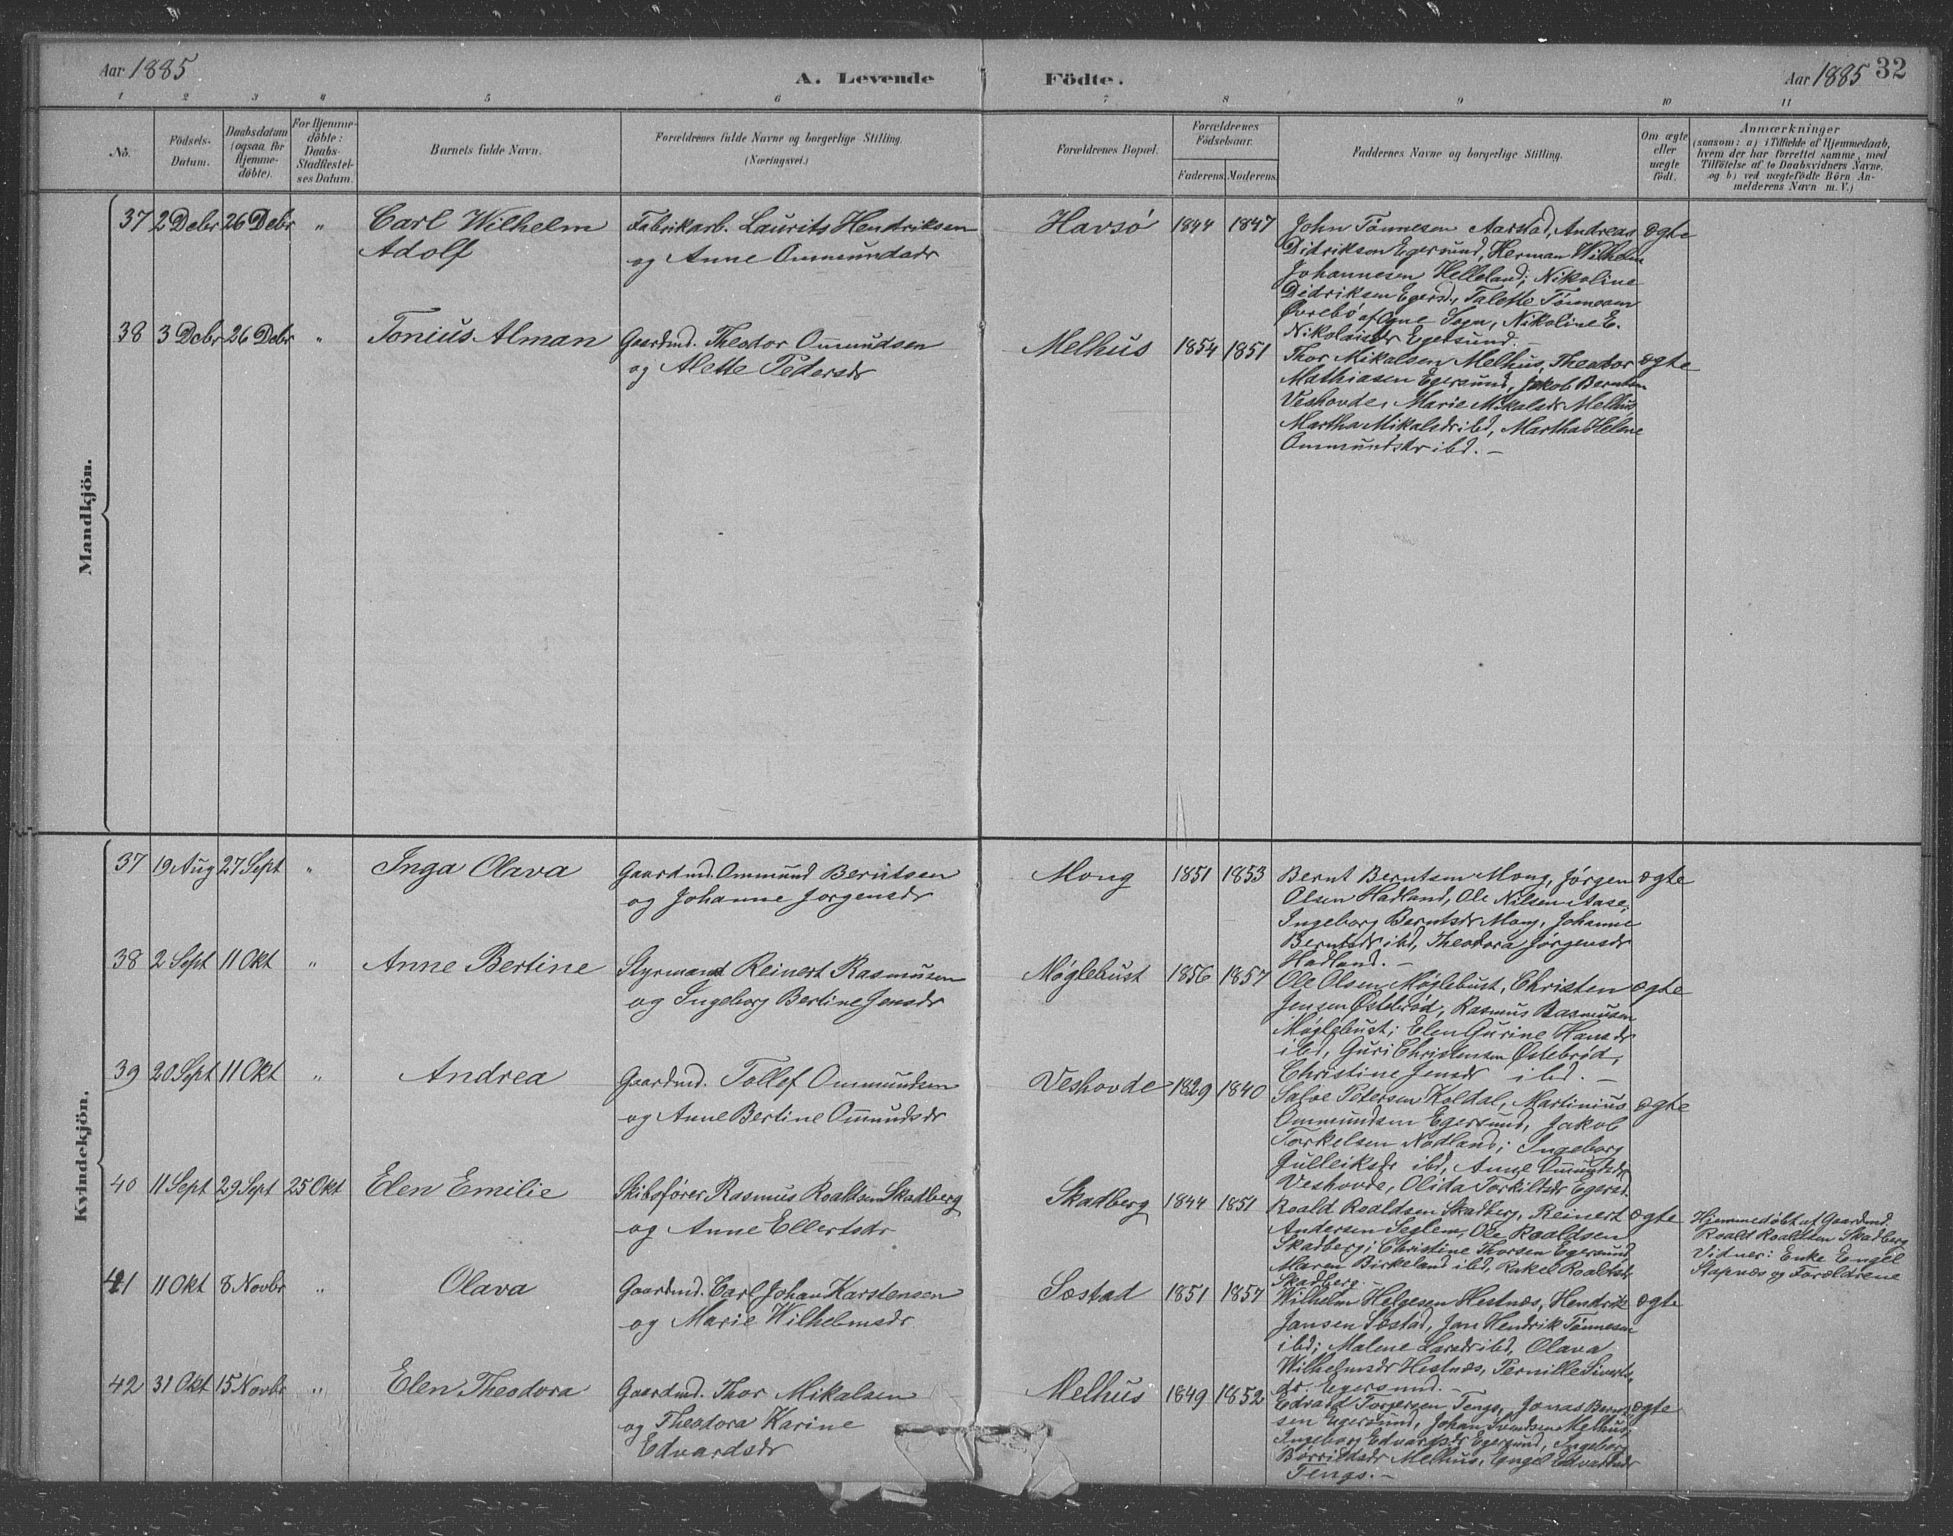 Aar 1885 A. Levende Födte. Aar 1885 32
1 2 3 4 5 6 7 8 9 10 11
No. Födsels-Datum. Daabsdatum (ogsaa for Hjemmedöbte). For Hjemmedöbte: Daabs-Stadfæstelses Datum. Barnets fulde Navn. Forældrenes fulde Navne og borgerlige Stilling. (Næringsvei.) Forældrenes Bopæl. Forældrenes Födselsaar. Faderens. Moderens. Faddernes Navne og borgerlige Stilling. Om ægte eller uægte födt. Anmærkninger
(saasom: a) i Tilfælde af Hjemmedaab, hvem der har forrettet samme, med Tilföielse af to Daabsvidners Navne, og b) ved uægtefödte Börn Anmelderens Navn m. V.)
Mandkjön.
37 2 Debr 26 Debr " Carl Wilhelm Fabrikarb. Laurits Hendriksen Havsö 1844 1847 John Tönnesen Aarstad, Andreas ægte
Adolf og Anne Ommundsdr Didriksen Egersund, Herman Wilhelm
Johannesen Helleland; Nikoline
Didriksen Egersd, Talette Tönnesen
Örebö af Ogne Sogn, Nikoline E.
Nikolaisdr Egersund. –
38 3 Debr 26 Debr " Tonius Alman Gaardmd. Theodor Ommundsen Melhus 1854 1851 Thor Mikalsen Melhus, Theodor ægte
og Alette Pedersdr Mathiasen Egersund, Jakob Berntsen
Veshovde, Marie Mikalsdr Melhus,
Martha Mikalsdr ibd, Martha Helene
Ommundsdr ibd. –
Kvindekjön.
37 19 Aug 27 Sept " Inga Olava Gaardmd. Ommund Berntsen Mong 1851 1853 Bernt Berntsen Mong, Jörgen ægte
og Johanne Jorgensdr Olsen Hadland, Ole Nilsen Aase;
Ingeborg Berntsdr Mong, Johanne
Berntsdr ibd, Theodora Jörgensdr
Hadland. –
38 2 Sept 11 Okt " Anne Bertine Styrmand Reinert Rasmusen Möglebust 1856 1857 Ole Olsen Möglebust, Christen ægte
og Ingeborg Bertine Jensdr Jensen Östebröd, Rasmus Rasmusen
Möglebust; Elen Gurine Hansdr
ibd, Guri Christensen Östebröd,
Christine Jensdr ibd. –
39 20 Sept 11 Okt " Andrea Gaardmd. Tollef Ommundsen Veshovde 1829 1840 Salve Petersen Koldal, Martinius ægte
og Anne Bertine Ommundsdr Ommundsen Egersund, Jakob
Torkelsen Nodland; Ingeborg
Gulleiksdr ibd, Anne Omundsdr
Veshovde, Olida Torkildsdr Egersd.
40 11 Sept 29 Sept 25 Okt Elen Emilie Skibsförer Rasmus Roaldsen Skadberg Skadberg 1844 1851 Roald Roaldsen Skadberg, Reinert ægte Hjemmedöbt af Gaardmd.
og Anne Ellertsdr Andersen Seglem, Ole Roaldsen Roald Roaldsen Skadberg
Skadberg; Christine Thorsen Egersund, Vidner: Enke Engel
Maren Birkeland ibd, Rakel Roaldsdr Stapnæs og Forældrene
Skadberg. –
41 11 Okt 8 Novbr " Olava Gaardmd. Carl Johan Karstensen Sæstad 1851 1857 Wilhelm Helgesen Hestnæs, Hendrik ægte
og Marie Wilhelmsdr Jansen Sæstad, Jan Hendrik Tönnesen
ibd; Malene Larsdr ibd, Olava
Wilhelmsdr Hestnæs, Pernille Siverts-
dr. Egersund. –
42 31 Okt 15 Novbr " Elen Theodora Gaardmd. Thor Mikalsen Melhus 1849 1852 Edvard Torgersen Tengs, Jonas Bernt- ægte
og Theodora Karine sen Egersund, Johan Svendsen Melhus;
Edvardsdr Ingeborg Edvardsdr Egersund, Ingeborg
Börrildsdr Melhus, Engel Edvardsdr
Tengs. –